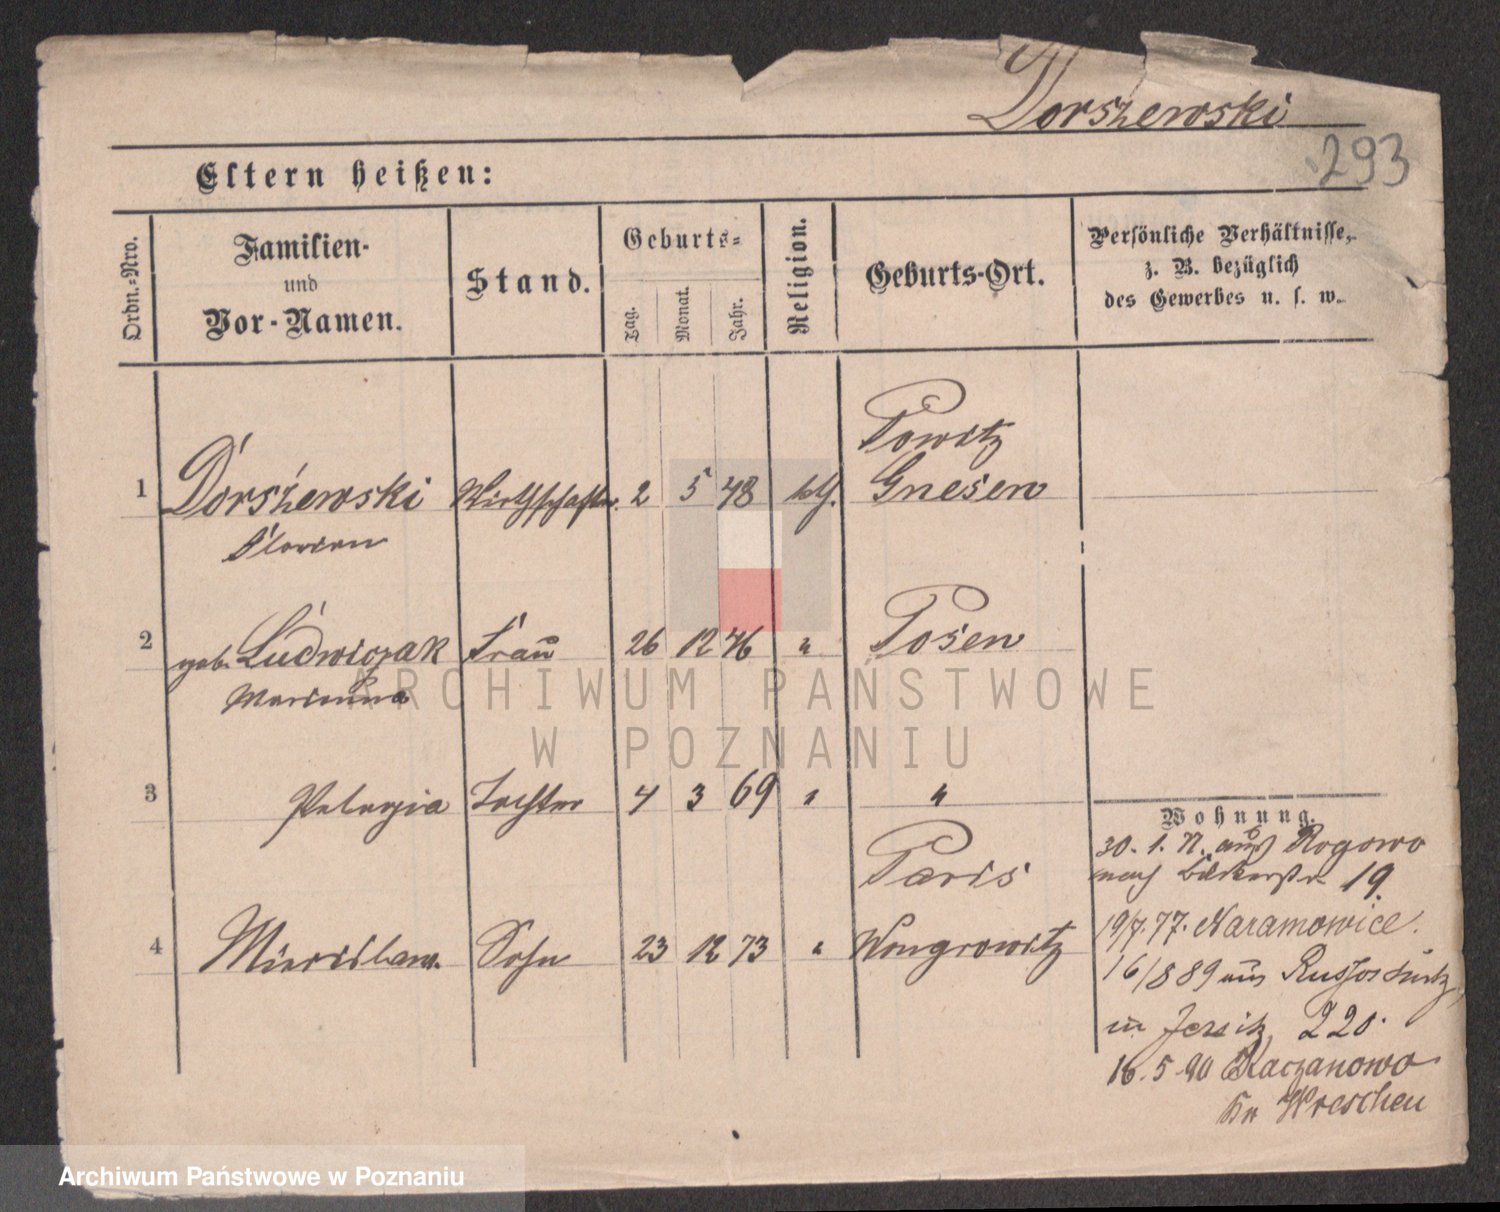 Dorszewski
293
Eltern heißen:
Ordn.-Nro.
Familien-
und
Vor-Namen.
Stand.
Geburts-
Tag.
Monat.
Jahr.
Religion.
Geburts-Ort.
Persönliche Verhältnisse,
z. B. bezüglich
des Gewerbes u. s. w.
Powitz
1 Dorszewski Wirthschafter 2 5 48 kth. Gnesen
Florian
2 geb. Ludwiczak Frau 26 12 46 " Posen
Marianna
3 Pelagia Tochter 4 3 69 " "
Paris
4 Miecislaw. Sohn 23 12 73 " Wongrowitz
Wohnung.
30. 1. 77. aus Rogowo
nach Bäckerstr. 19.
19/7. 77. Naramowice.
16/8 89 aus
in Jersitz 220.
16. 5. 90 Kaczanowo
Kr Wreschen
ARCHIWUM PAŃSTWOWE
W POZNANIU
Archiwum Państwowe w Poznaniu